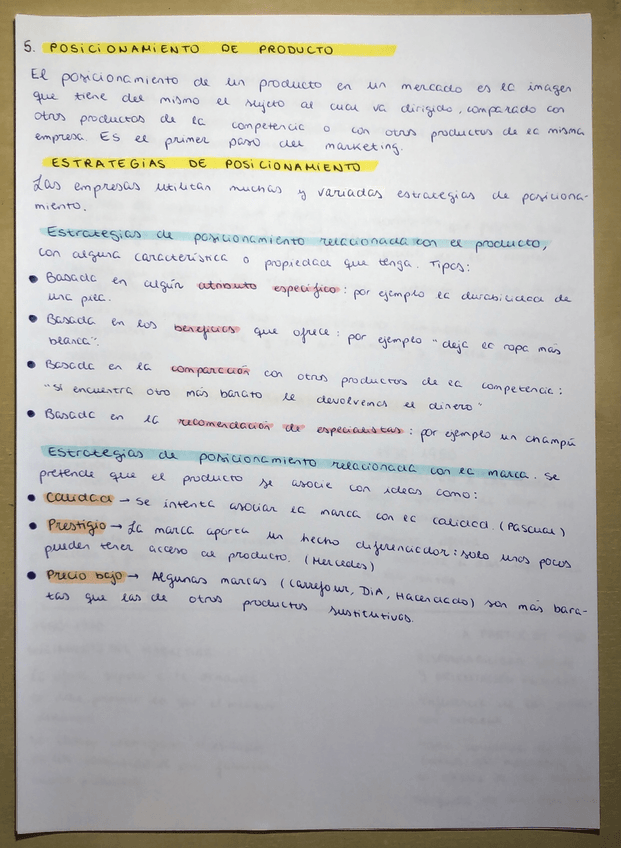 5. POSICIONAMIENTO DE PRODUCTO
El posicionamiento de un producto en un mercado es la imagen
que tiene del mismo el sujeto al cual va dirigido, comparado con
otros productos de la competencia o con otros productos de la misma
empresa. ES el primer paso del marketing.
ESTRATEGIAS DE POSICIONAMIENTO
Las empresas utilizan muchas y variadas estrategias de posiciona-
miento.
Estrategias de posicionamiento relacionada con el producto,
con alguna característica o propiedad que tenga. Tipos:
• Basada en algún atributo específico: por ejemplo la durabilidad de
una pila.
• Basada en los beneficios que ofrece: por ejemplo "deja la ropa más
blanca".
• Basada en la comparación con otros productos de la competencia:
"si encuentra otro más barato le devolvemos el dinero"
• Basada en la recomendación de especialistas: por ejemplo un champú
Estrategias de posicionamiento relacionada con la marca. Se
pretende que el producto se asocie con ideas como:
• Calidad → Se intenta asociar la marca con la calidad. (Pascual)
• Prestigio → La marca aporta un hecho diferenciador: solo unos pocos
pueden tener acceso al producto. (Mercedes)
• Precio bajo → Algunas marcas (Carrefour, DIA, Hacendado) son más bara-
tas que las de otros productos sustitutivos.